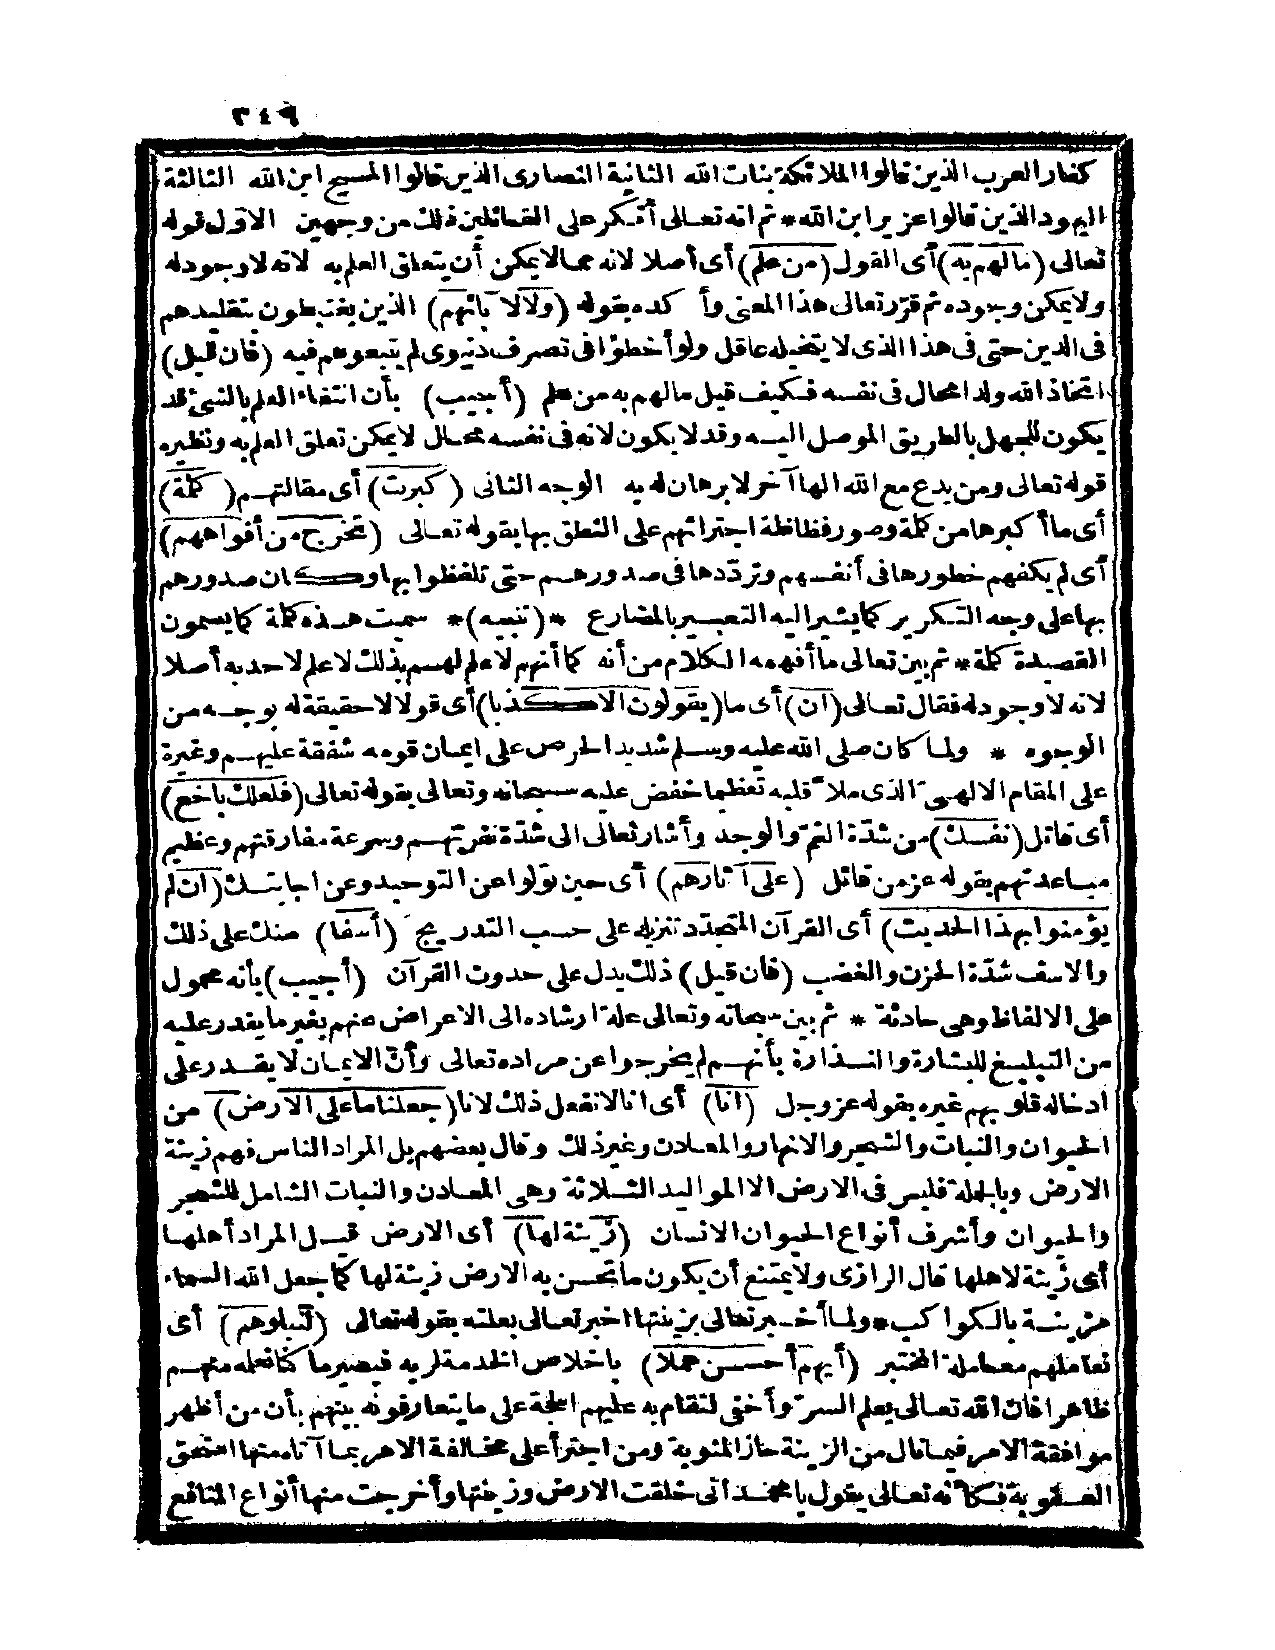 ٣٤٩
كفار العرب الذين قالوا الملائكة بنات الله الثانية النصارى الذين قالوا المسيح ابن الله الثالثة
اليهود الذين قالوا عزير ابن الله * ثم انه تعالى أنكر على القائلين ذلك من وجهين الاوّل قوله
تعالى (مالهم به) أى القول (من علم) أى أصلا لانه مما لا يمكن أن يتعلق العلم به لانه لا وجود له
ولا يمكن وجوده ثم قرّر تعالى هذا المعنى وأكده بقوله (ولا لآبائهم) الذين يغتبطون بتقليدهم
فى الدين حتى فى هذا الذى لا يتخيله عاقل ولو أخطؤا فى تصرف دنيوى لم يتبعوهم فيه (فان قيل)
اتخاذ الله ولدا محال فى نفسه فكيف قيل مالهم به من علم (أجيب) بأن انتفاء العلم بالشئ قد
يكون للجهل بالطريق الموصل اليه وقد لا يكون لانه فى نفسه محال لا يمكن تعلق العلم به ونظيره
قوله تعالى ومن يدع مع الله الها آخر لا برهان له به الوجه الثانى (كبرت) أى مقالتهم (كلمة)
أى ما أكبرها من كلمة وصور فظاظة اجترائهم على النطق بها بقوله تعالى (تخرج من أفواههم)
أى لم يكفهم خطورها فى أنفسهم وتردّدها فى صدورهم حتى تلفظوا بها وكان صدورهم
بها على وجه التكرير كما يشير اليه التعبير بالمضارع * (تنبيه) * سميت هذه كلمة كما يسمون
القصيدة كلمة * ثم بين تعالى ما أفهمه الكلام من أنه كما أنهم لا علم لهم بذلك لا علم لاحد به أصلا
لانه لا وجود له فقال تعالى (ان) أى ما (يقولون الا كذبا) أى قولا لا حقيقة له بوجه من
الوجوه * ولما كان صلى الله عليه وسلم شديد الحرص على ايمان قومه شفقة عليهم وغيرة
على المقام الالهىّ الذى ملأ قلبه تعظيما خفض عليه سبحانه وتعالى بقوله تعالى (فلعلك باخع)
أى قاتل (نفسك) من شدّة الغمّ والوجد وأشار تعالى الى شدّة نفرتهم وسرعة مفارقتهم وعظيم
مباعدتهم بقوله عز من قائل (على آثارهم) أى حين تولوا عن التوحيد وعن اجابتك (ان لم
يؤمنوا بهذا الحديث) أى القرآن المتجدّد تنزيله على حسب التدريج (أسفا) منك على ذلك
والاسف شدّة الحزن والغضب (فان قيل) ذلك يدل على حدوث القرآن (أجيب) بأنه محمول
على الالفاظ وهى حادثة * ثم بين سبحانه وتعالى علة ارشاده الى الاعراض عنهم بغير ما يقدر عليه
من التبليغ للبشارة والنذارة بأنهم لم يخرجوا عن مراده تعالى وأنّ الايمان لا يقدر على
ادخاله قلوبهم غيره بقوله عز وجل (انا) أى انا لا نفعل ذلك لانا (جعلنا ما على الارض) من
الحيوان والنبات والشجر والانهار والمعادن وغير ذلك وقال بعضهم بل المراد الناس فهم زينة
الارض وبالجملة فليس فى الارض الا المواليد الثلاثة وهى المعادن والنبات الشامل للشجر
والحيوان وأشرف أنواع الحيوان الانسان (زينة لها) أى الارض قيل المراد أهلها
أى زينة لاهلها قال الرازى ولا يمتنع أن يكون ما تحسن به الارض زينة لها كما جعل الله السماء
مزينة بالكواكب * ولما أخبر تعالى بزينتها اخبر تعالى بعلته بقوله تعالى (لنبلوهم) أى
نعاملهم معاملة المختبر (أيهم أحسن عملا) باخلاص الخدمة لربه فيصير ما كنا نعلمه منهم
ظاهرا فان الله تعالى يعلم السرّ وأخفى لتقام به عليهم الحجة على ما يتعارفونه بينهم بأن من أظهر
موافقة الامر فيما نال من الزينة حاز المثوبة ومن اجترأ على مخالفة الامر بما آتاه منها استحق
العقوبة فكأنه تعالى يقول يا محمد انى خلقت الارض وزينتها وأخرجت منها أنواع المنافع